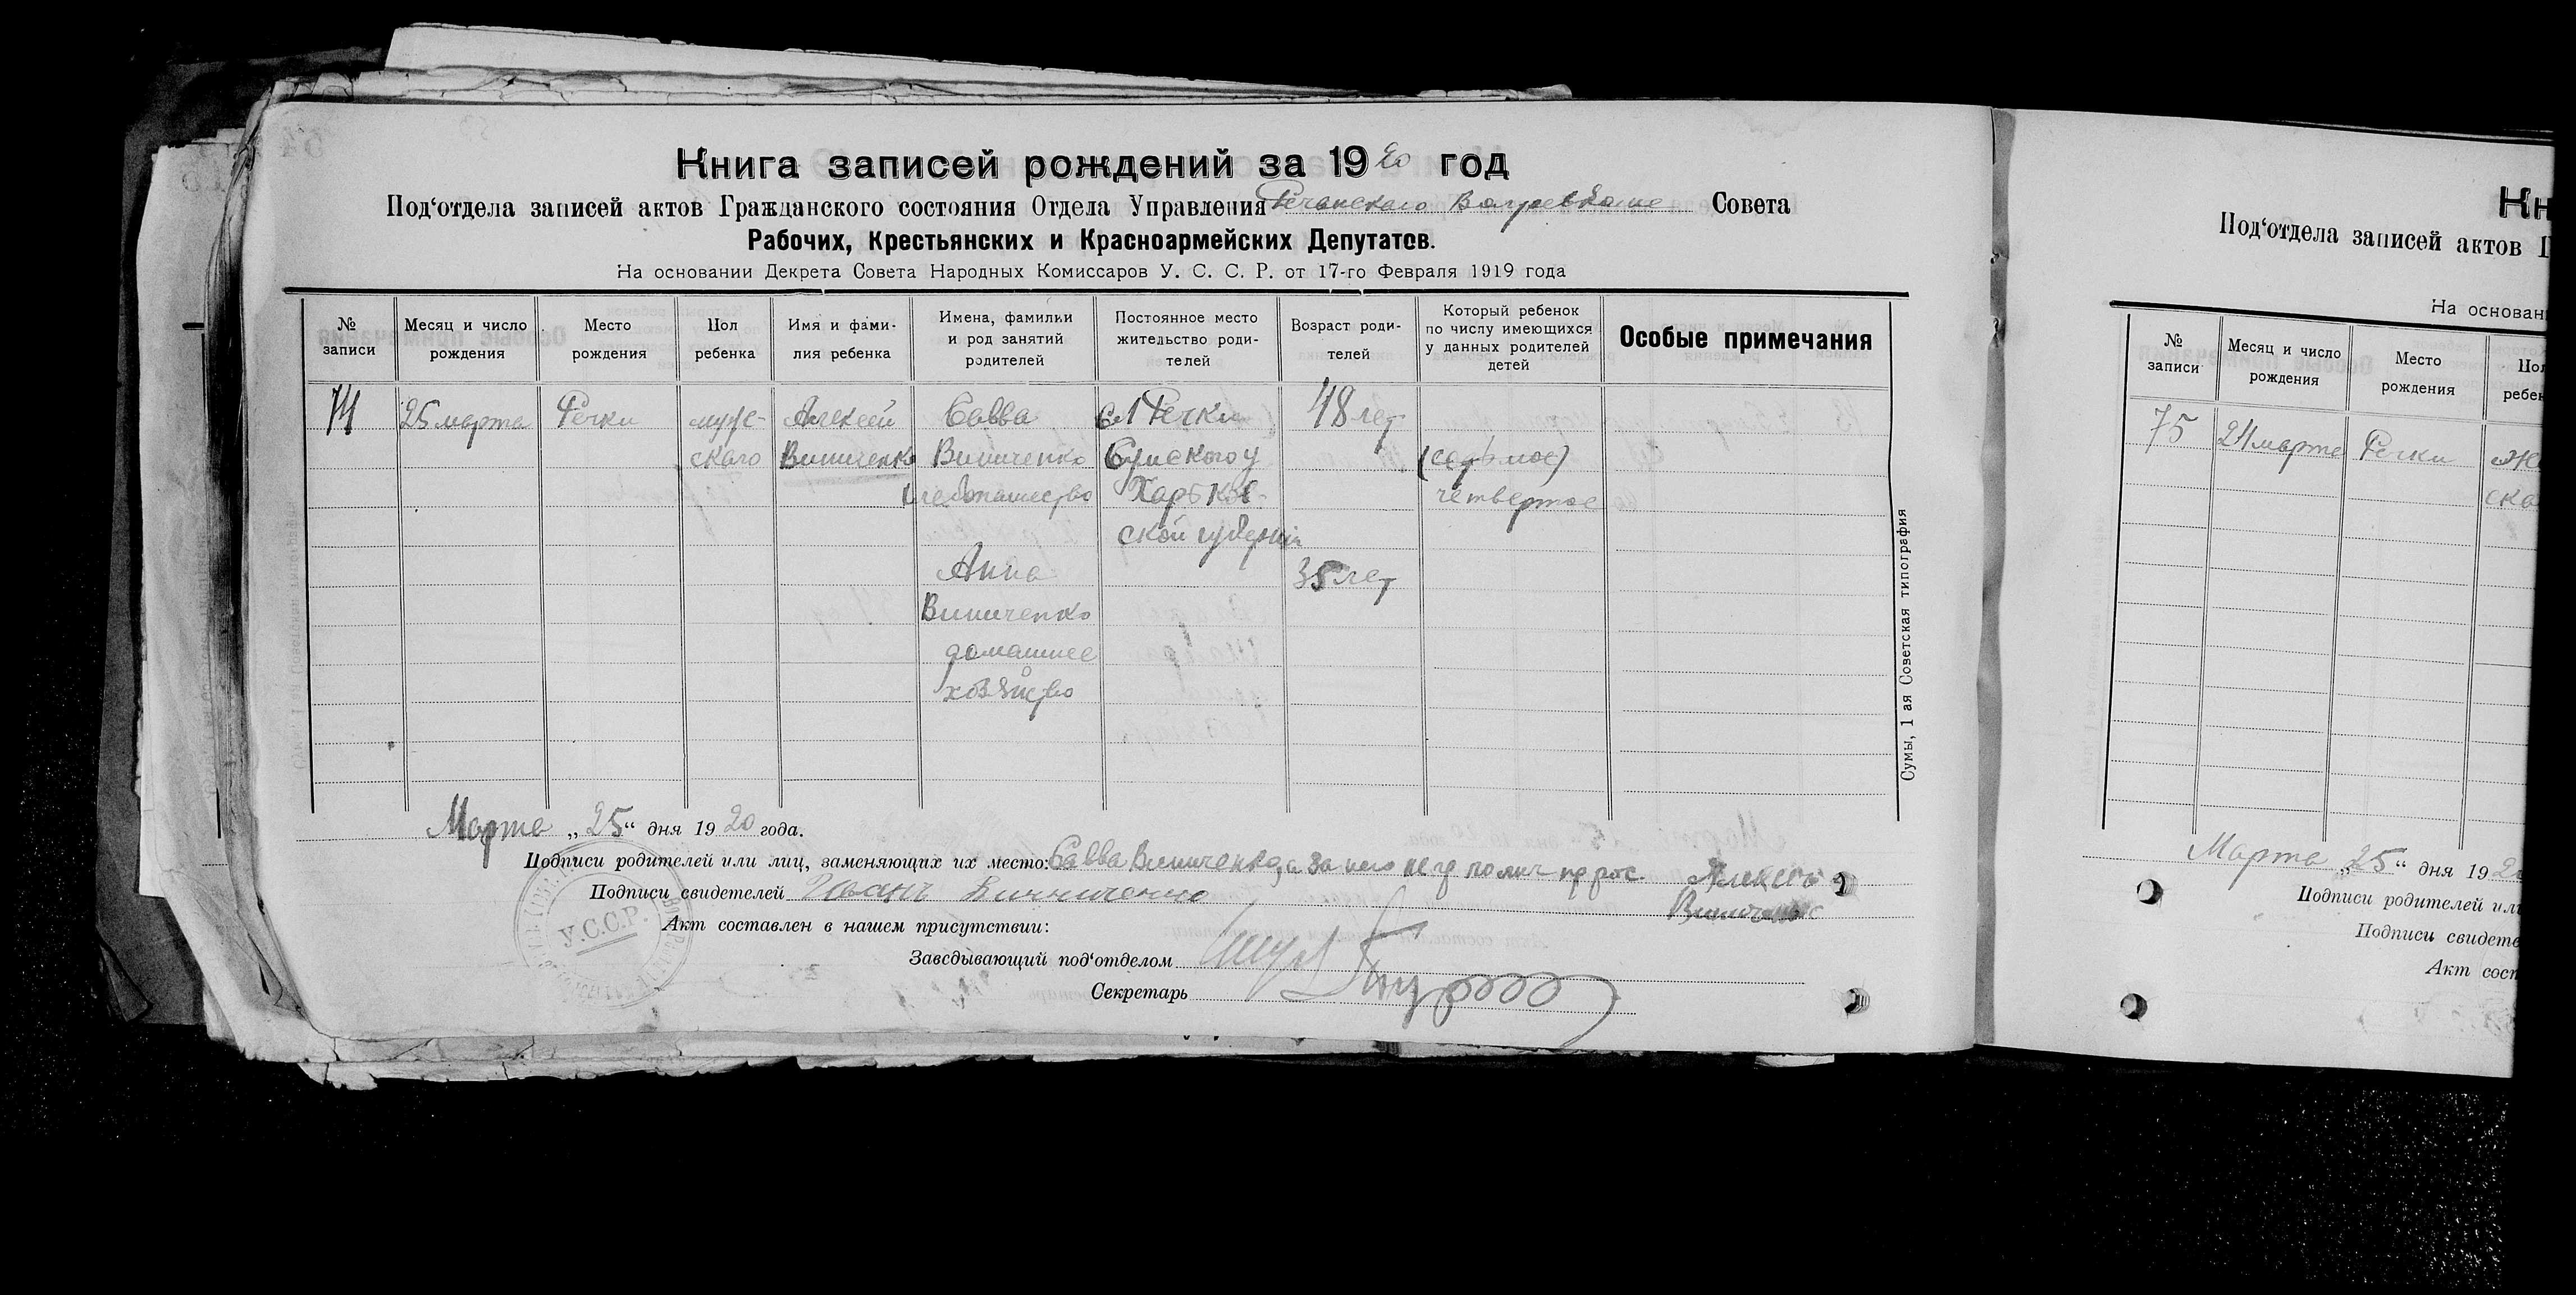 Книга записей рождений за 1920 год
Под‘отдела записей актов Гражданского состояния Отдела Управления Речанского Волревкома Совета
Рабочих, Крестьянских и Красноармейских Депутатов.
На основании Декрета Совета Народных Комиссаров У. С. С. Р. от 17-го Февраля 1919 года
№ записи
Месяц и число рождения
Место рождения
Пол ребенка
Имя и фами-
лия ребенка
Имена, фамильи
и род занятий
родителей
Постоянное место
жительство роди-
телей
Возраст роди-
телей
Который ребенок
по числу имеющихся
у данных родителей
детей
Особые примечания
74
25 марта
Речки
муж-
ского
Алексей
Виниченко
Савва
Виниченко
хлебопашество
Анна
Виниченко
домашнее
хозяйство
сл Речки
Сумского у
Харьков-
ской губернии
48 лет
35 лет
(седьмое)
четвертое
Сумы, 1 ая Советская типография
Марта „25“ дня 1920 года.
Подписи родителей или лиц, заменяющих их место: Савва Виниченко, а за него негр по лич прос. Алексей
Виниченко
Подписи свидетелей Иванъ Винниченко
Акт составлен в нашем присутствии:
Заведывающий под‘отделом
Секретарь
У.С.С.Р.
Кн
Под‘отдела записей актов Г
На основан
№ записи
Месяц и число
рождения
Место
рождения
Пол
ребен
75
24 марта
Речки
же
ско
Марта „25“ дня 192
Подписи родителей или
Подписи свидете
Акт сост